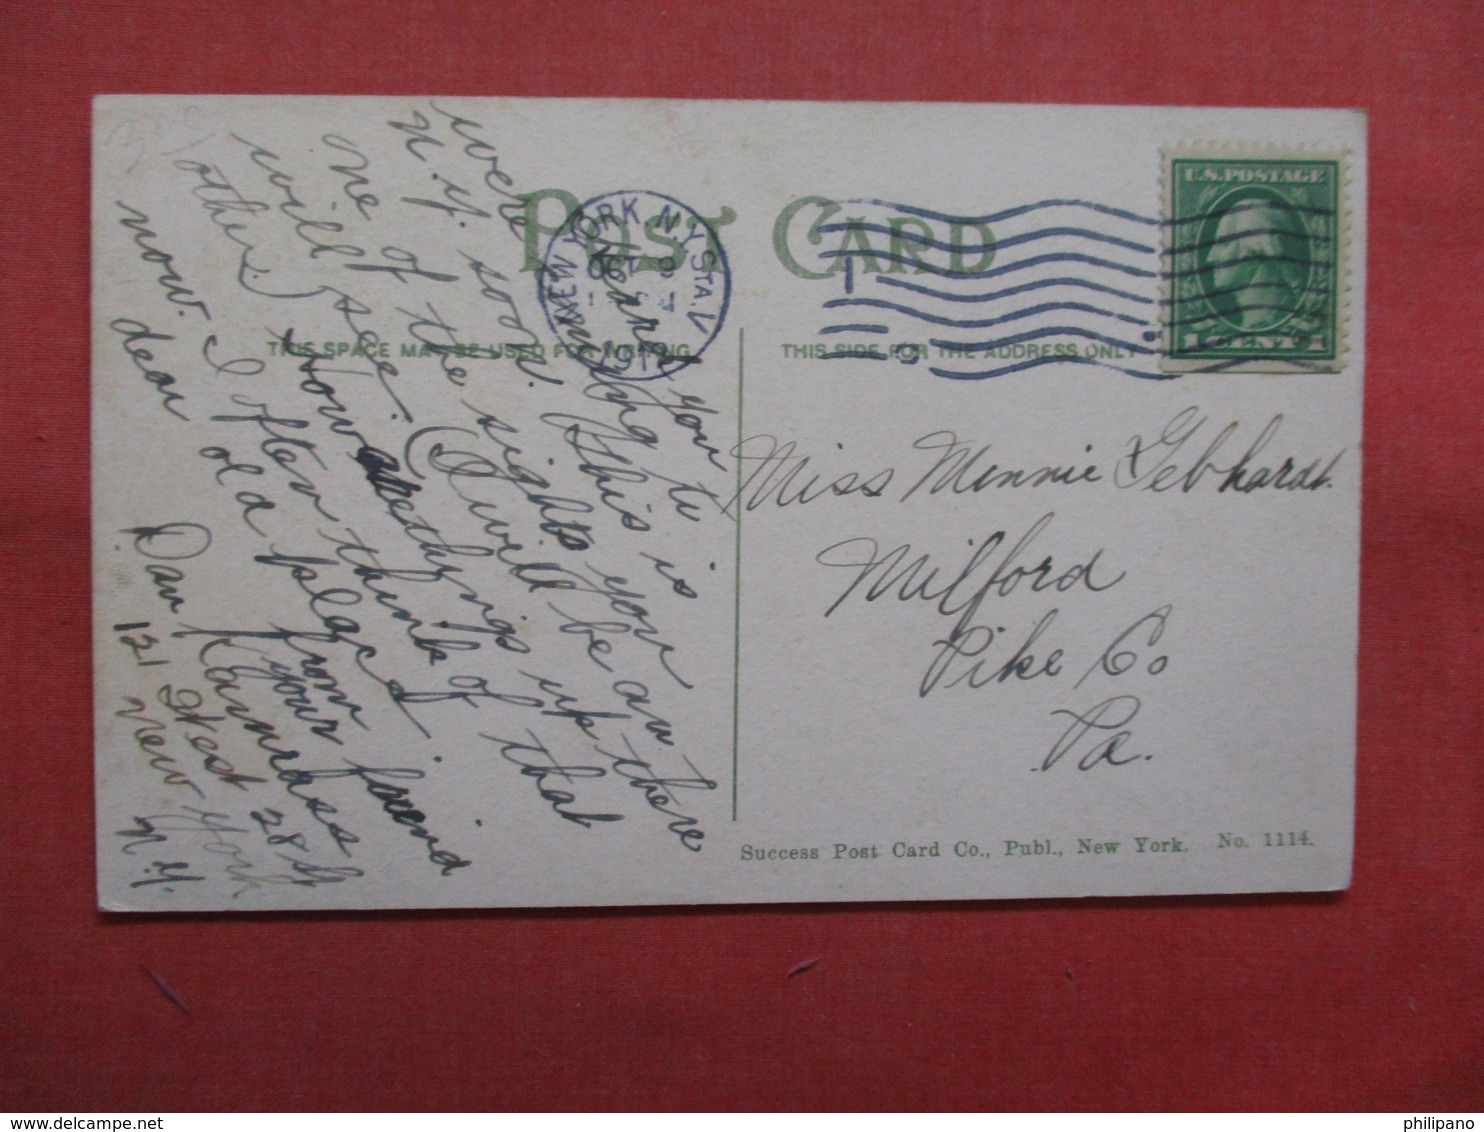 POST CARD
NEW YORK, N.Y. STA. V
OCT 9
191
U.S. POSTAGE
1 CENT 1
THIS SPACE MAY BE USED FOR WRITING
THIS SIDE FOR THE ADDRESS ONLY
I heard you
were coming to
N. Y. soon. (This is
one of the sights you
will see. (I will be an
other.) How are things up there
now. I often think of that
dear old place.
from your friend
Dan
121 West 28 St
New York
N.Y.
Miss Minnie Gebhardt.
Milford
Pike Co
Pa.
Success Post Card Co., Publ., New York. No. 1114.
philipano